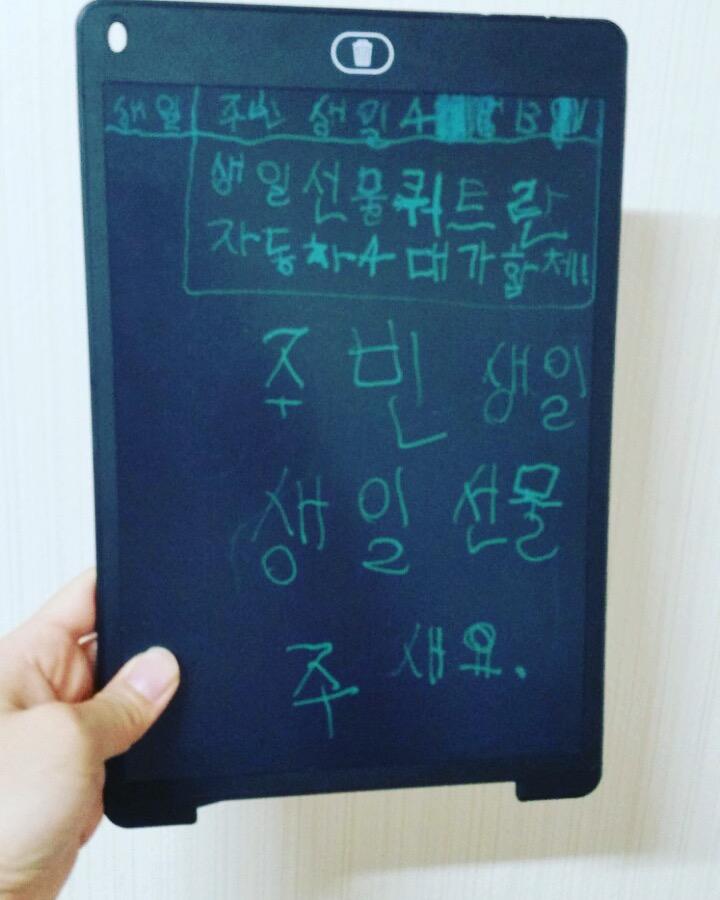 생일 주빈 생일
생일선물쿼트란
자동차4대가합체!
주빈 생일
생일 선물
주새요.